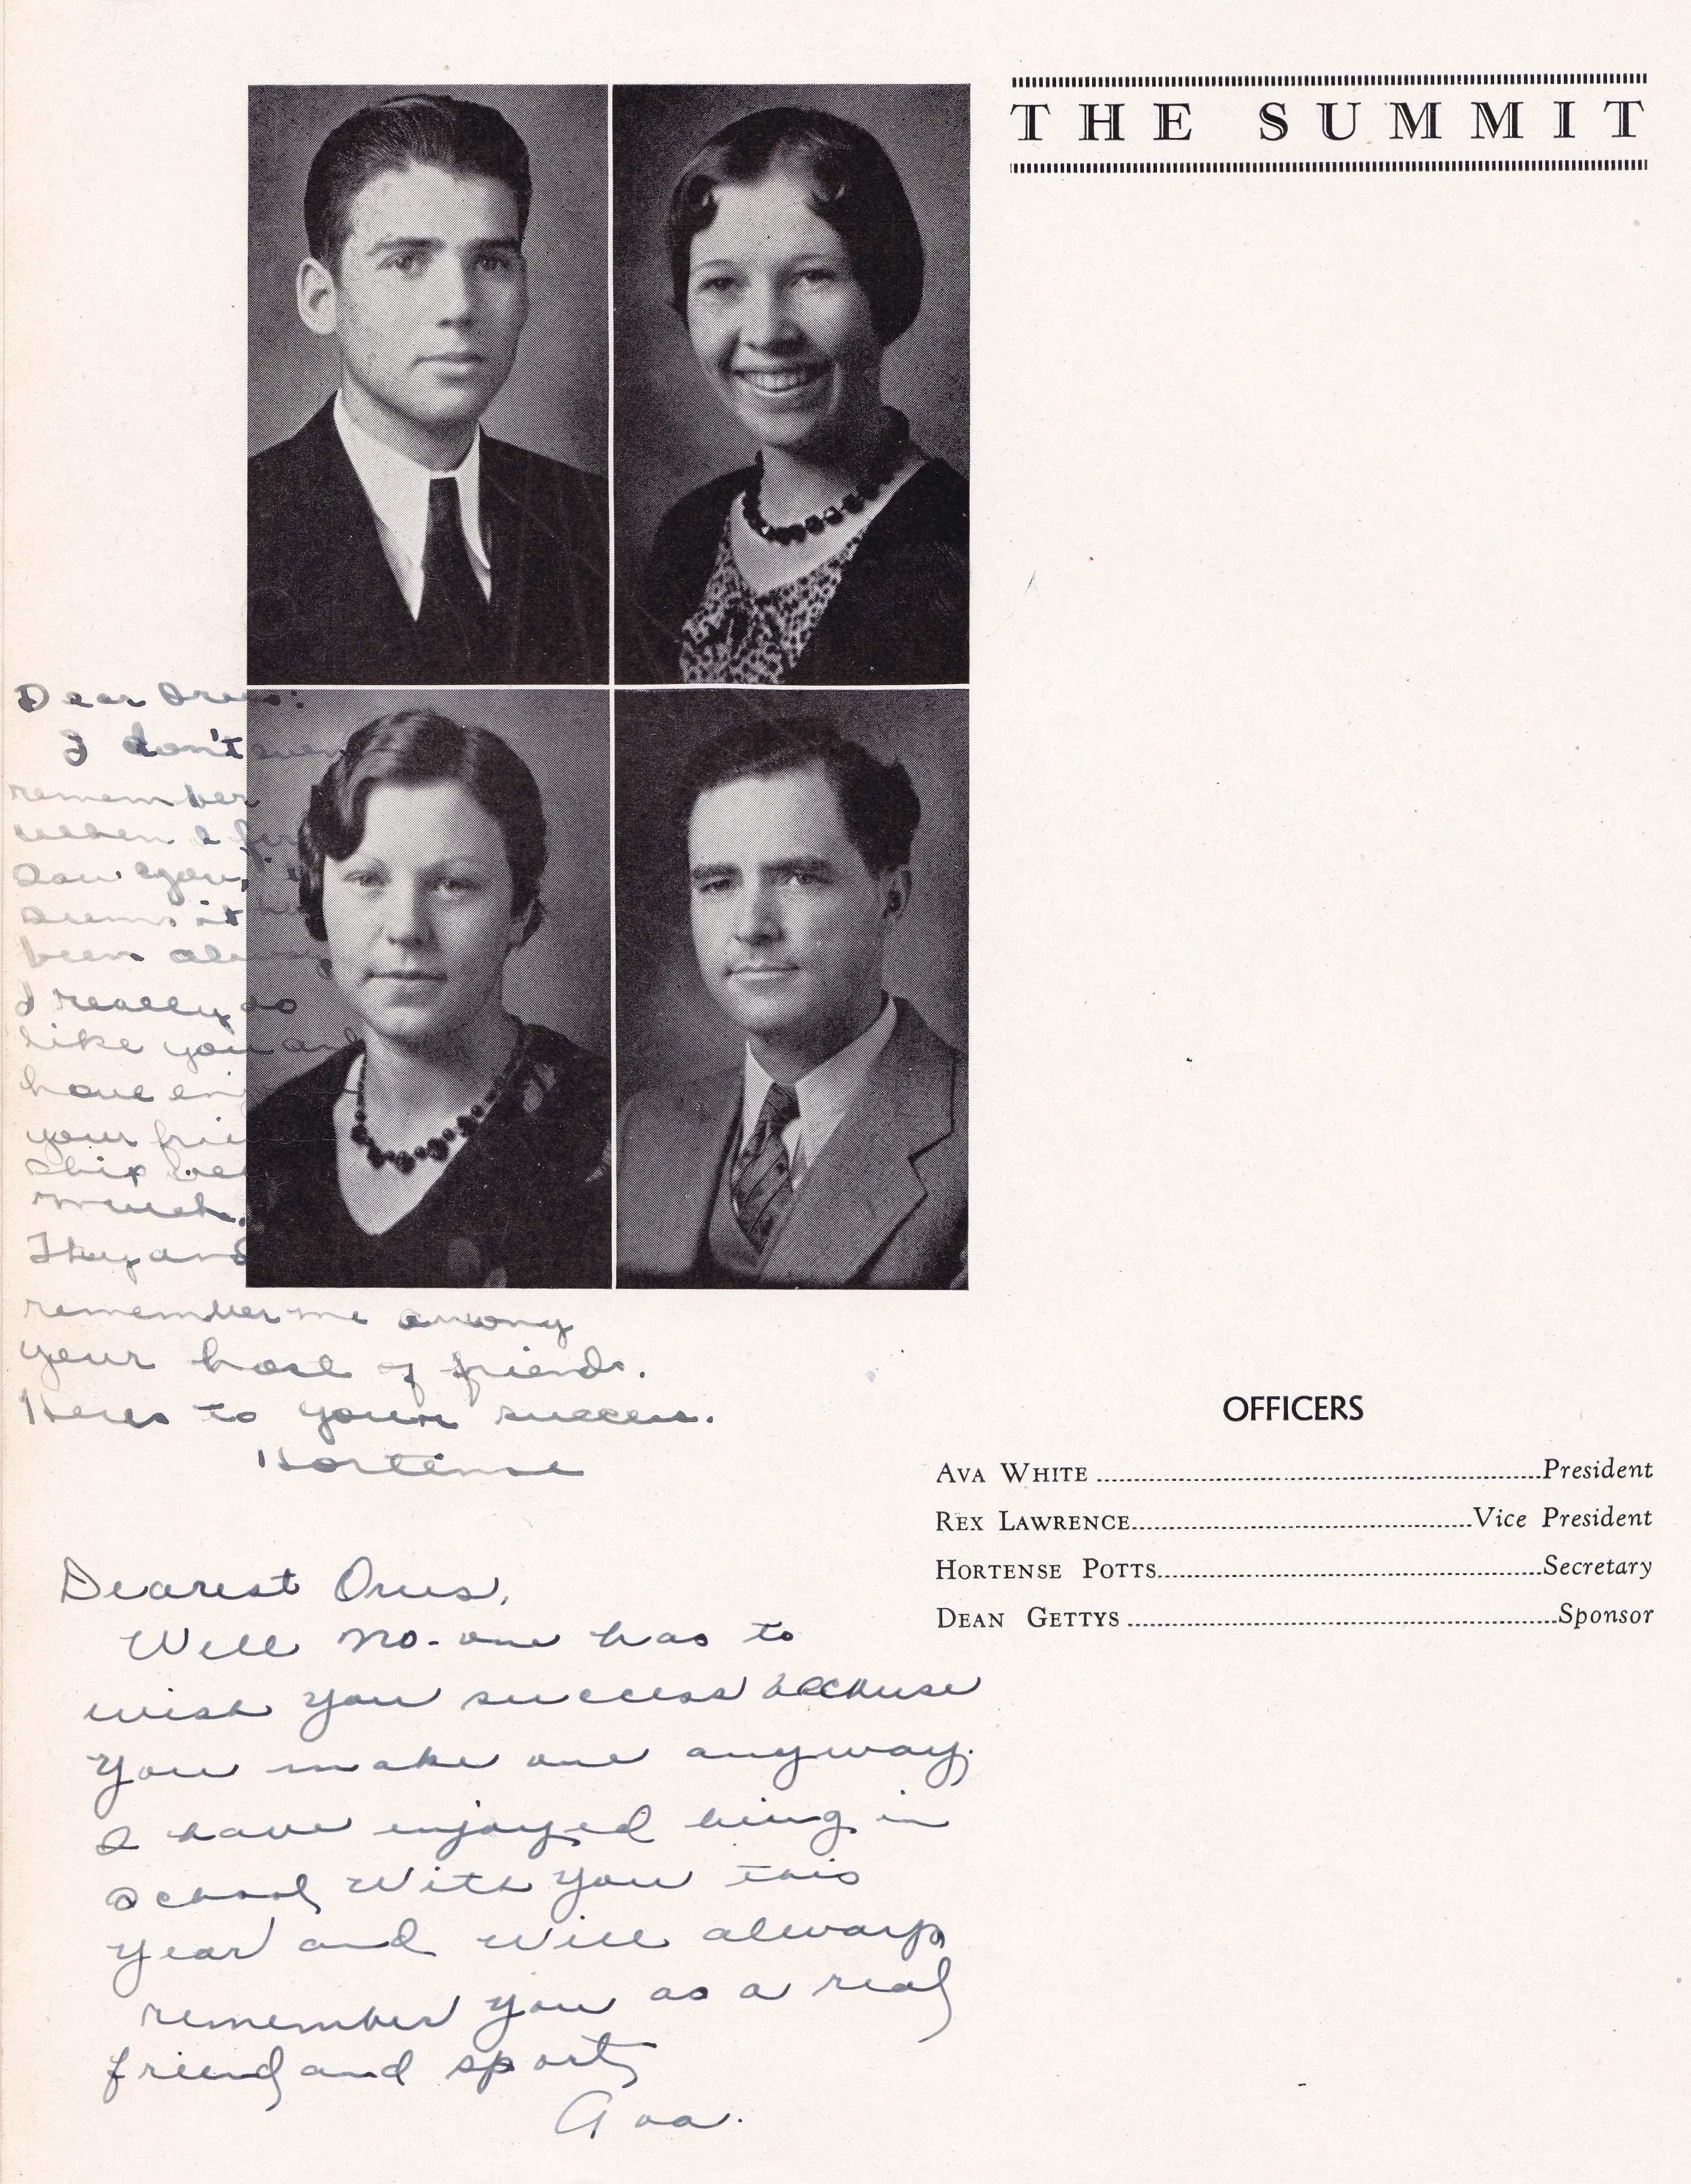 THE SUMMIT
Dear Orus:
I don't even
remember
when I
saw you, it
seems it has
been always
I really do
like you and
have
your
ship
much.
Try and
remember me among
your host of friends.
Heres to your success.
Hortense
OFFICERS
AVA WHITE ........ President
REX LAWRENCE ........ Vice President
HORTENSE POTTS ........ Secretary
DEAN GETTYS ........ Sponsor
Dearest Orus,
Well no-one has to
wish you success because
you make one anyway.
I have enjoyed being in
school with you this
year and will always
remember you as a real
friend and sport
Ava.